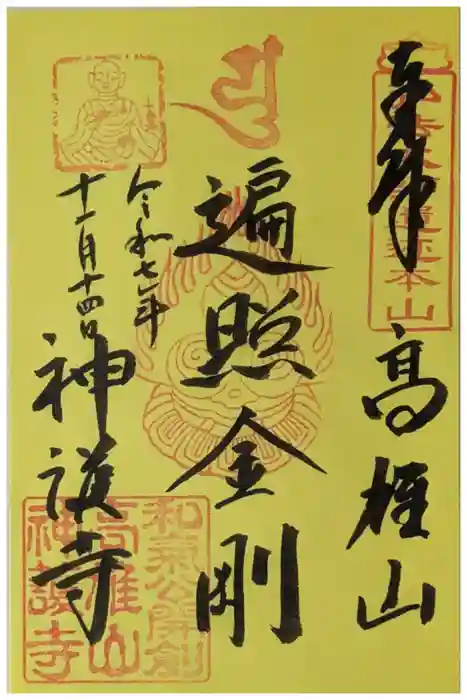 奉拝
高雄山
遍照金剛
令和七年
十一月十四日
神護寺
和氣公開創
高雄山
神護寺